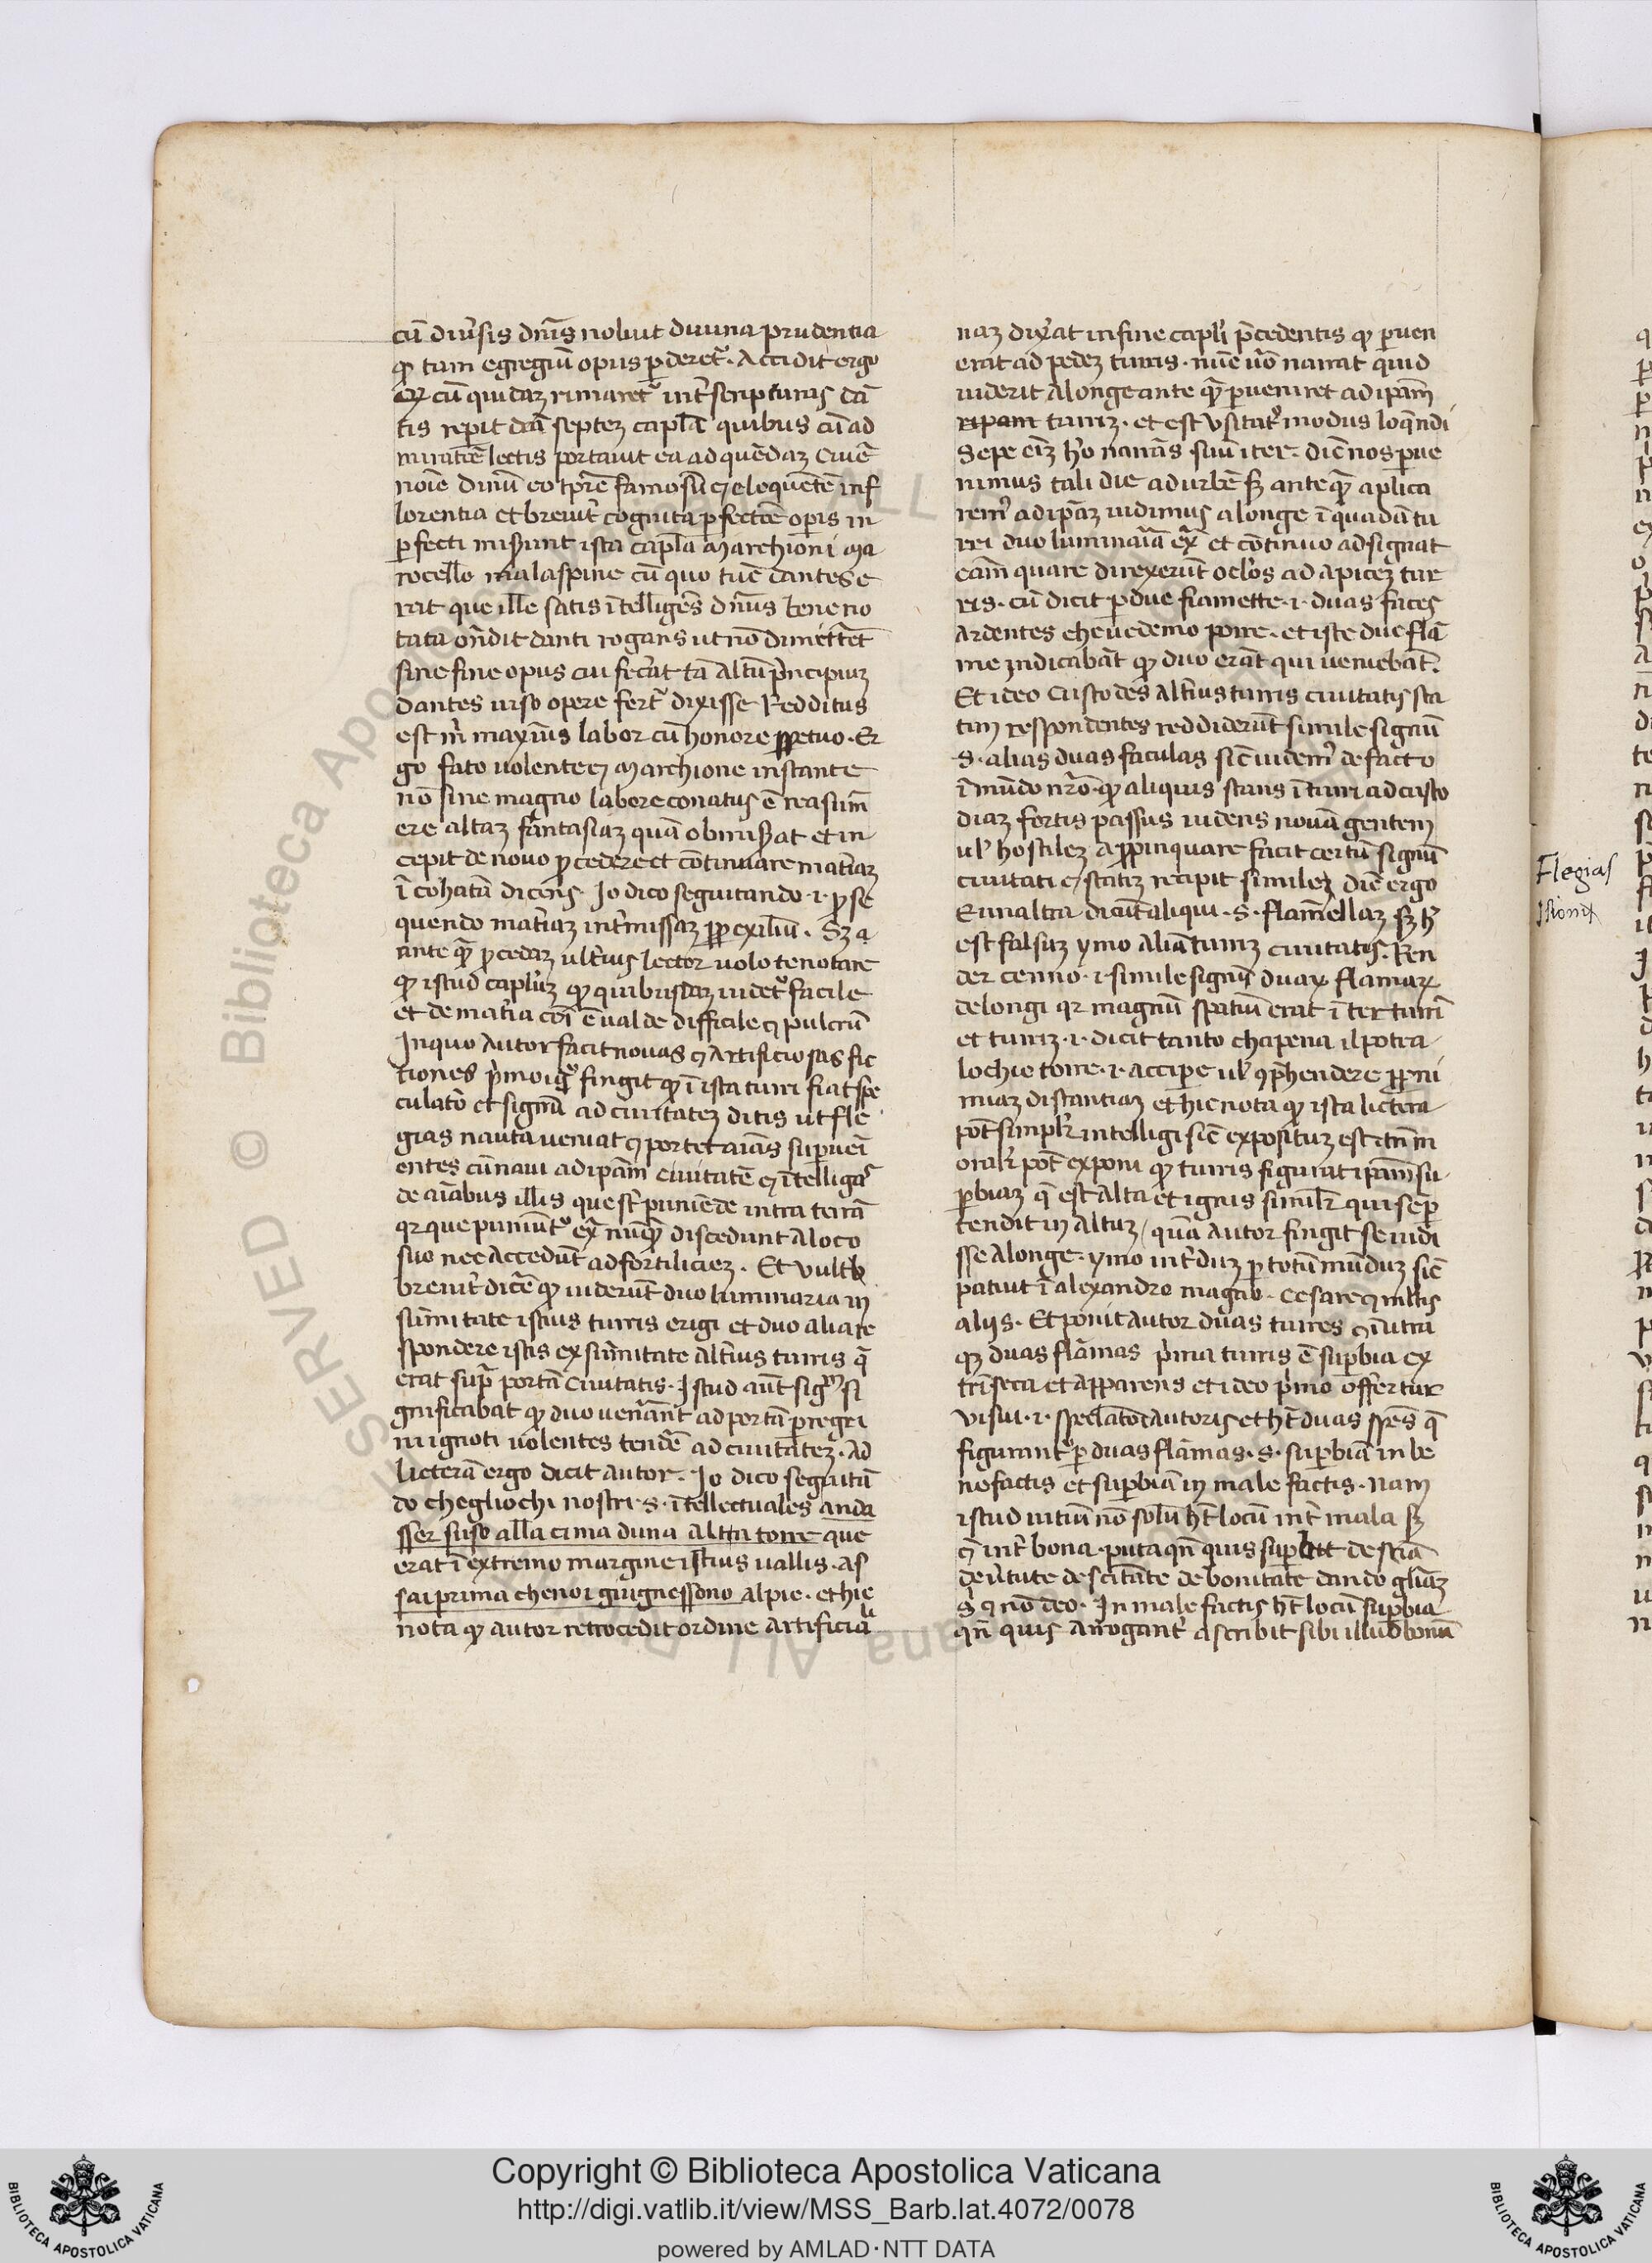 cũ diu̾sis dñis noluit diuina prudentia
ꝙ tam egregiũ opus ꝑderet᷑. Accidit ergo
ꝙ cũ quidaꝫ rimaret᷑ int̾ scripturas dã
tis reperit dcã septeꝫ capl̃a quibus cũ ad
miratiõe lectis portauit ea ad quẽdaꝫ ciuẽ
noĩe dinũ eo tp̃re famosũ ⁊ eloquẽtẽ in f
lorentia et breuit̾ cognita ꝑfectõe op̃is in
ꝑfecti miserunt ista capl̃a marchioni ma
rocello malaspine cũ quo tũc dantes e
rat que ille satis ĩtelligẽs dñus bene no
tata oñdit danti rogans ut nõ dimittẽt
sine fine opus cui fecerat tã altũ prĩncipiuꝫ
dantes uiso opere fert᷑ dixisse Redditus
est m̃ maxim̃s labor cũ honore ꝑpetuo. Er
go fato uolente ⁊ marchione instante
nõ sine magno labore conatus ẽ reasum̃
ere altaꝫ fãntasiaꝫ quã obmiserat et in
cepit de nouo ꝓcedere et cõtinuare matiaꝫ
ĩcohatã dicens. Io dico seguitando .i. ꝓse
quendo mat̾iaꝫ int̾missaꝫ ꝓp̃ exiliũ. Sꝫ a
ante quã ꝓcedaꝫ ult̾ius lector uolo te notare
ꝙ istud capl̾uꝫ ꝙ quibusdaꝫ uidet᷑ facile
et de mat̾ia cõi ẽ ualde difficile ⁊ pulcrũ
In quo autor facit nouas ⁊ artificiosas fic
tiones p̾mo igr̃ fingit ꝙ ĩ ista turi fiat spe
culatõ et signũ ad ciuitateꝫ ditis ut fle
gias nauta ueniat ⁊ portet aĩas supuei
entes cũ naui ad ip̃am ciuitatẽ ⁊ ĩtelligat᷑
de aĩabus illis que s̃t puniẽde intra terrã
qr que puniũt᷑ ex̃ nũq̃ discedunt a loco
suo nec accedũt ad fortilicieꝫ. Et vult
breuit̾ dicẽ ꝙ uiderũt duo luminaria in
sũmitate istius turris erigi et duo alia re
spondere istis ex sũmitate alt̾ius turris q̃
erat sup̃ portã ciuitatis. Istud aũt sig̃ si
gnificabat ꝙ duo uenerãnt ad portã peregri
ni ignoti uolentes tendẽ ad ciuitateꝫ. Ad
licterã ergo dicit autor. Io dico seguitã
do che gliochi nostri .s. ĩtellectuales anda
sser suso alla cima duna alta torre que
erat ĩ extremo margine istius uallis. as
sai prima che noi giugnessono alpie. et hic
nota ꝙ autor retrocedit ordine artificiali
naꝫ dix̾at in fine capl̾i p̃cedentis ꝙ ꝑuen
erat ad pedeꝫ turris. nũc ũo narrat quid
uiderit a longe ante quã ꝑueniret ad ip̃am
ripam turriꝫ. et est vsitat᷑ modus loq̃ndi
Sepe eĩꝫ hõ narrãs suũ iter dic̃ nos ꝑue
nimus tali die ad urbẽ sꝫ ante q̃ aplica
rem̾ ad ip̃aꝫ uidimus a longe ĩ quadã tu
rri duo luminaĩa ex̃ et cõtinuo adsignat
cãm quare direxerũt ocl̾os ad apiceꝫ tur
ris. cũ dicit per due fiamette .i. duas faces
ardentes che uedemo porre. et iste due flã
me indicabãt ꝙ duo erãt qui ueniebãt.
Et ideo custodes alt̾ius turris ciuitatis sta
tim respondentes reddiderũt simile signũ
.s. alias duas faculas sic̃ uidem̾ de facto
ĩ mũdo nr̃o. ꝙ aliquis stans ĩ turri ad custo
diaꝫ fortis passus uidens nouã gentem
ul̾ hostileꝫ apꝓpinquare facit certũ signũ
ciuitati ⁊ statiꝫ recipit simileꝫ dic̃ ergo
E unaltra dicũt aliqui .s. flam̃ellaꝫ sꝫ h̾
est falsuꝫ ymo aliã turriꝫ ciuitatis. Ren
der cenno .i. simile signũ duaꝝ flamaꝝ
de longi qr magnũ spatiũ erat ĩter turrĩ
et turriꝫ .i. dicit tanto chapena il potea
lochio torre .i. accipere ul̾ cõp̃hendere ꝓp̃ ni
miaꝫ distantiaꝫ et hic nota ꝙ ista lictera
pot̃ simpl̾r intelligi sic̃ expositũꝫ est. tñ m
oral̾r pot̃ exponi ꝙ turris figurat ip̃am su
ꝑbiaꝫ q̃ est alta et ignis simil̾r qui semꝑ
tendit in altuꝫ / quã autor fingit se uidi
sse a longe. ymo int̾duꝫ ꝑ totũ mũduꝫ sic̃
patuit ĩ alexandro magno. Cesare ⁊ mltis
aliis. Et ponit autor duas turres ⁊ ĩ utra
qꝫ duas flãmas p̾ma turris ẽ supbia ex
trĩseca et apparens et ideo p̾mo offertur
visui .i. speclatõi autoris et ht̃ duas sp̃es q̃
figurant᷑ ꝑ duas flãmas .s. supbiã in be
nefactis et supbiã in male factis. nam
istud uitiũ nõ solũ ht̃ locũ int̾ mala sꝫ
⁊ int̾ bona. puta qñ quis supbit de sciã
de ũtute de scitãte de bonitate dando gl̃iaꝫ
s̾ ⁊ nõ deo. In male factis ht̃ locũ supbia
qñ quis arrogant̾ ascribit sibi illud bonũ
Flegias
Copyright © Biblioteca Apostolica Vaticana
http://digi.vatlib.it/view/MSS_Barb.lat.4072/0078
powered by AMLAD·NTT DATA